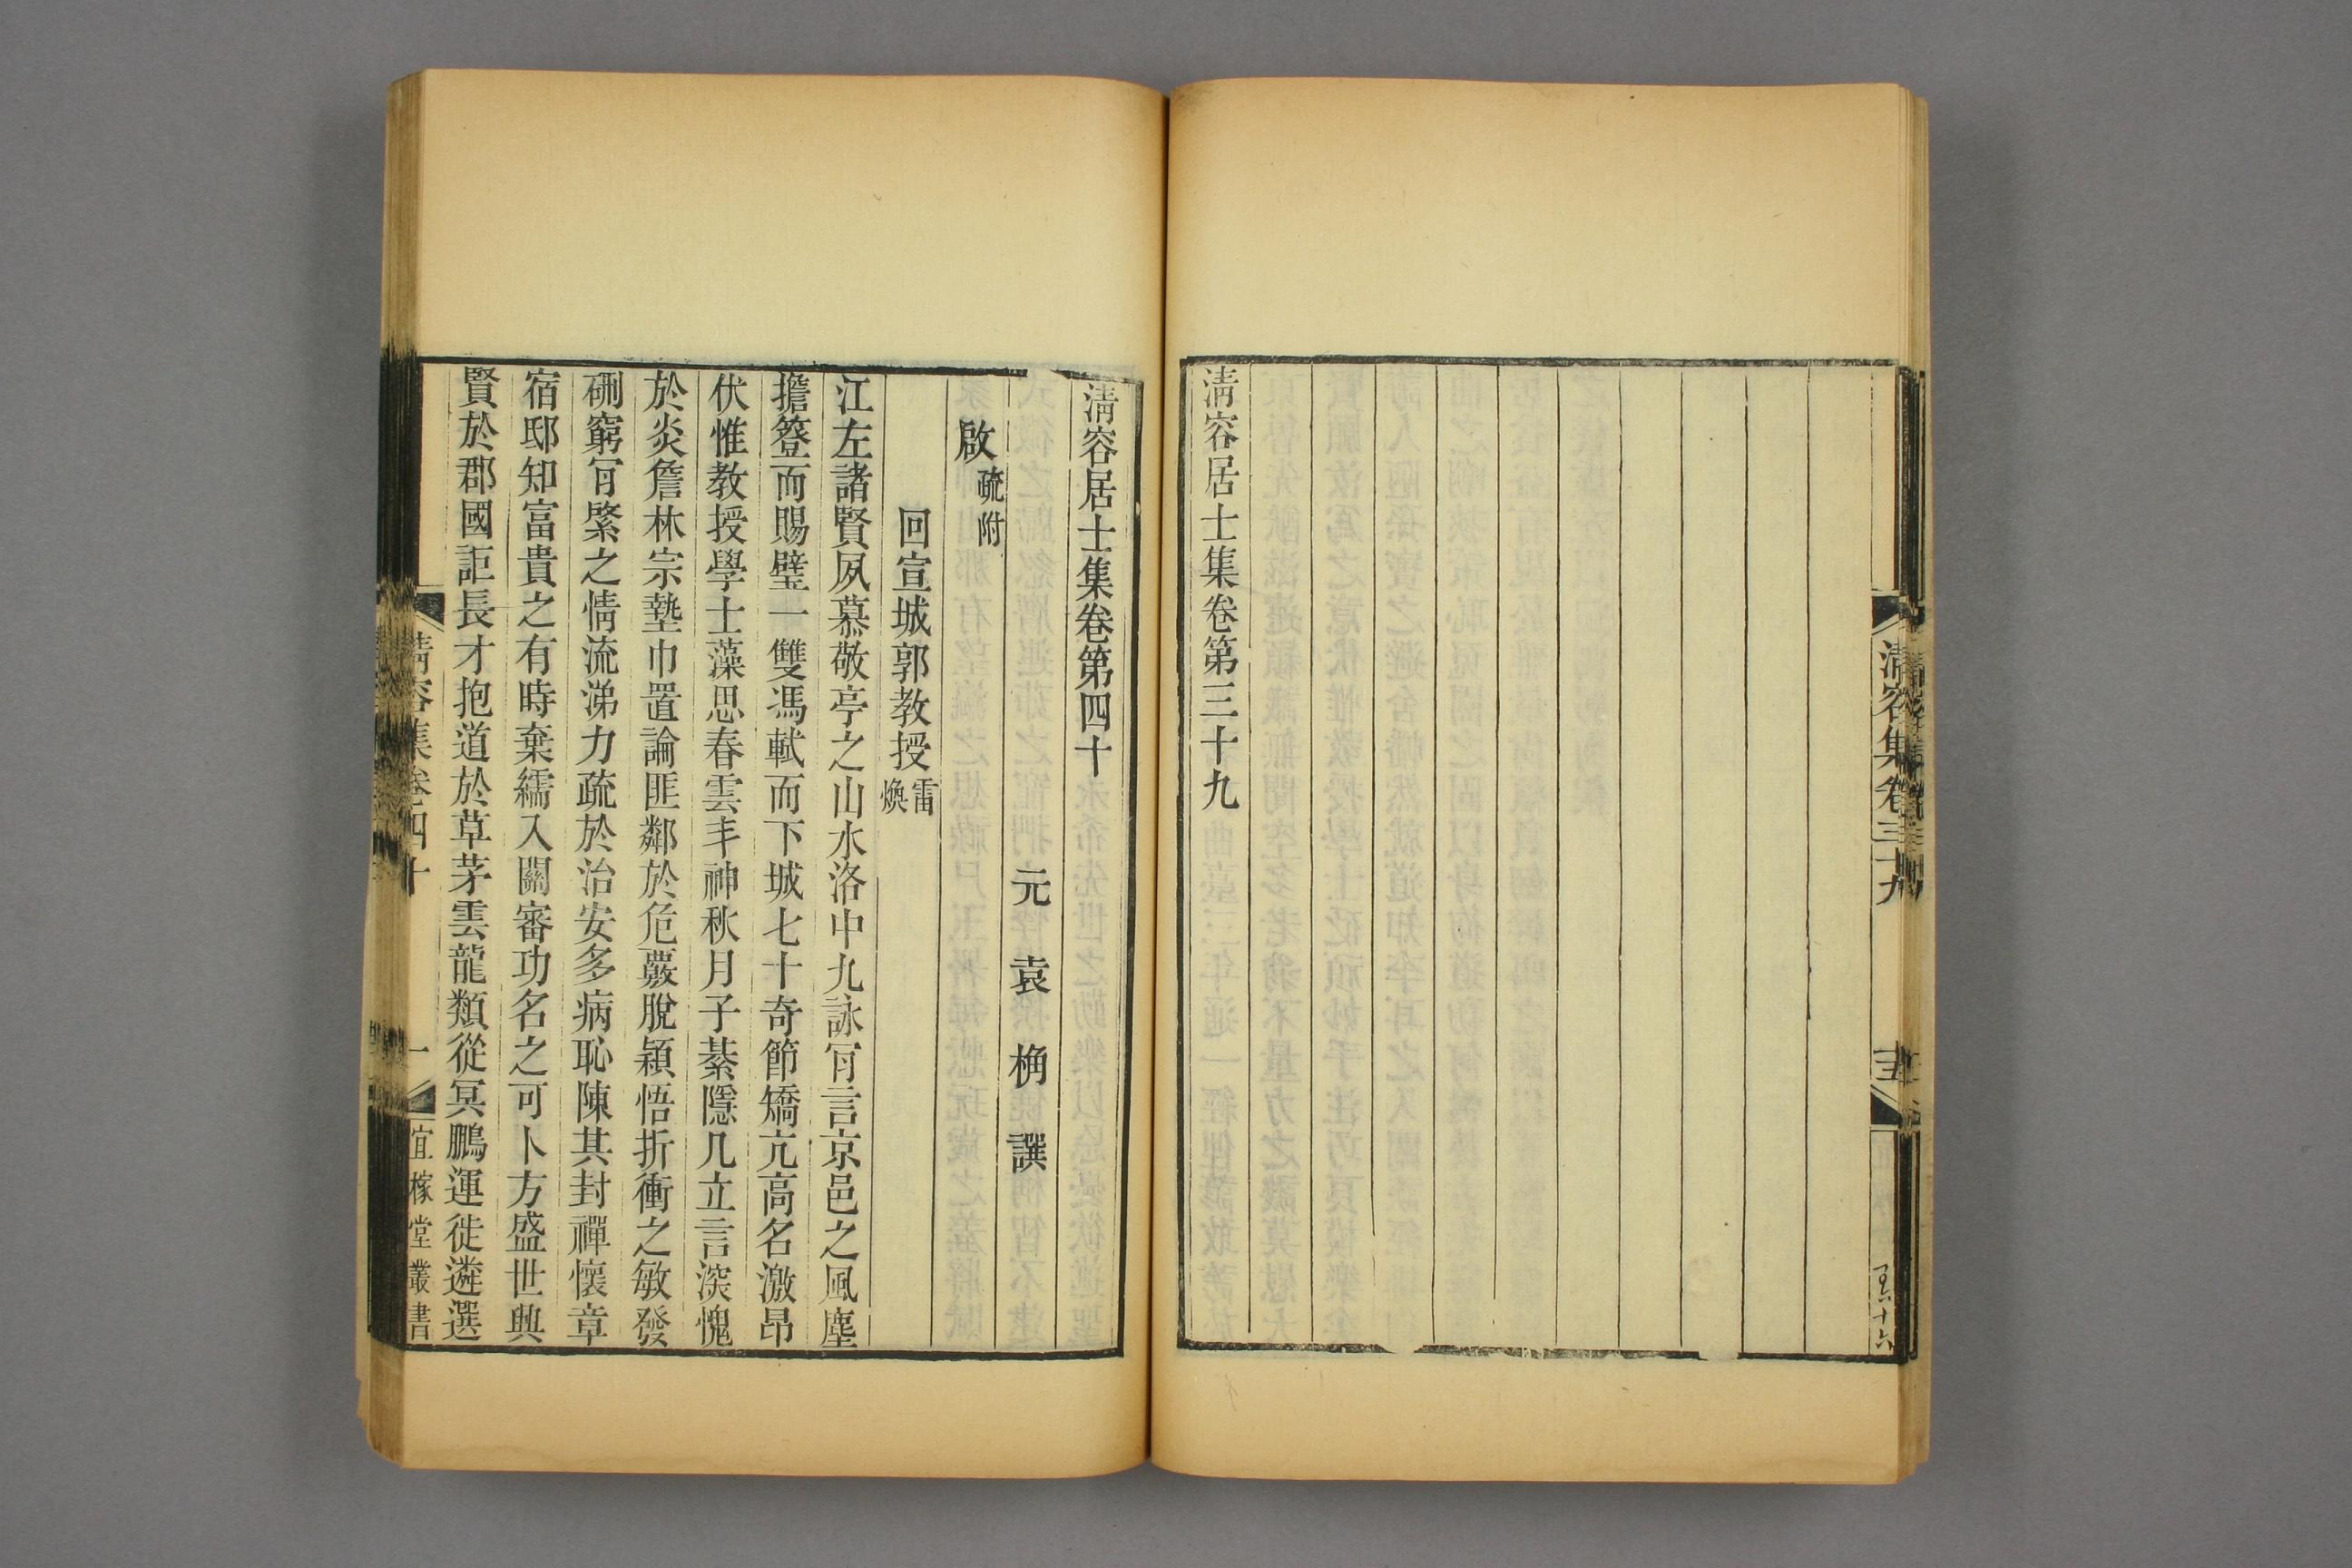 清容居士集卷第三十九
清容集卷三十九
清容居士集卷第四十
元袁桷譔
啟疏附
回宣城郭教授雷煥
江左諸賢夙慕敬亭之山水洛中九詠冐言京邑之風塵
擔簦而賜璧一雙馮軾而下城七十奇節矯亢高名激昂
伏惟教授學士藻思春雲丰神秋月子綦隱几立言深愧
於炎詹林宗墊巾置論匪鄰於危覈脫穎悟折衝之敏發
硎窮冐綮之情流涕力疏於治安多病恥陳其封禪懷章
宿邸知富貴之有時棄繻入關審功名之可卜方盛世興
賢於郡國詎長才抱道於草茅雲龍類從冥鵬運徙遴選
清容集卷四十
一
宜稼堂叢書